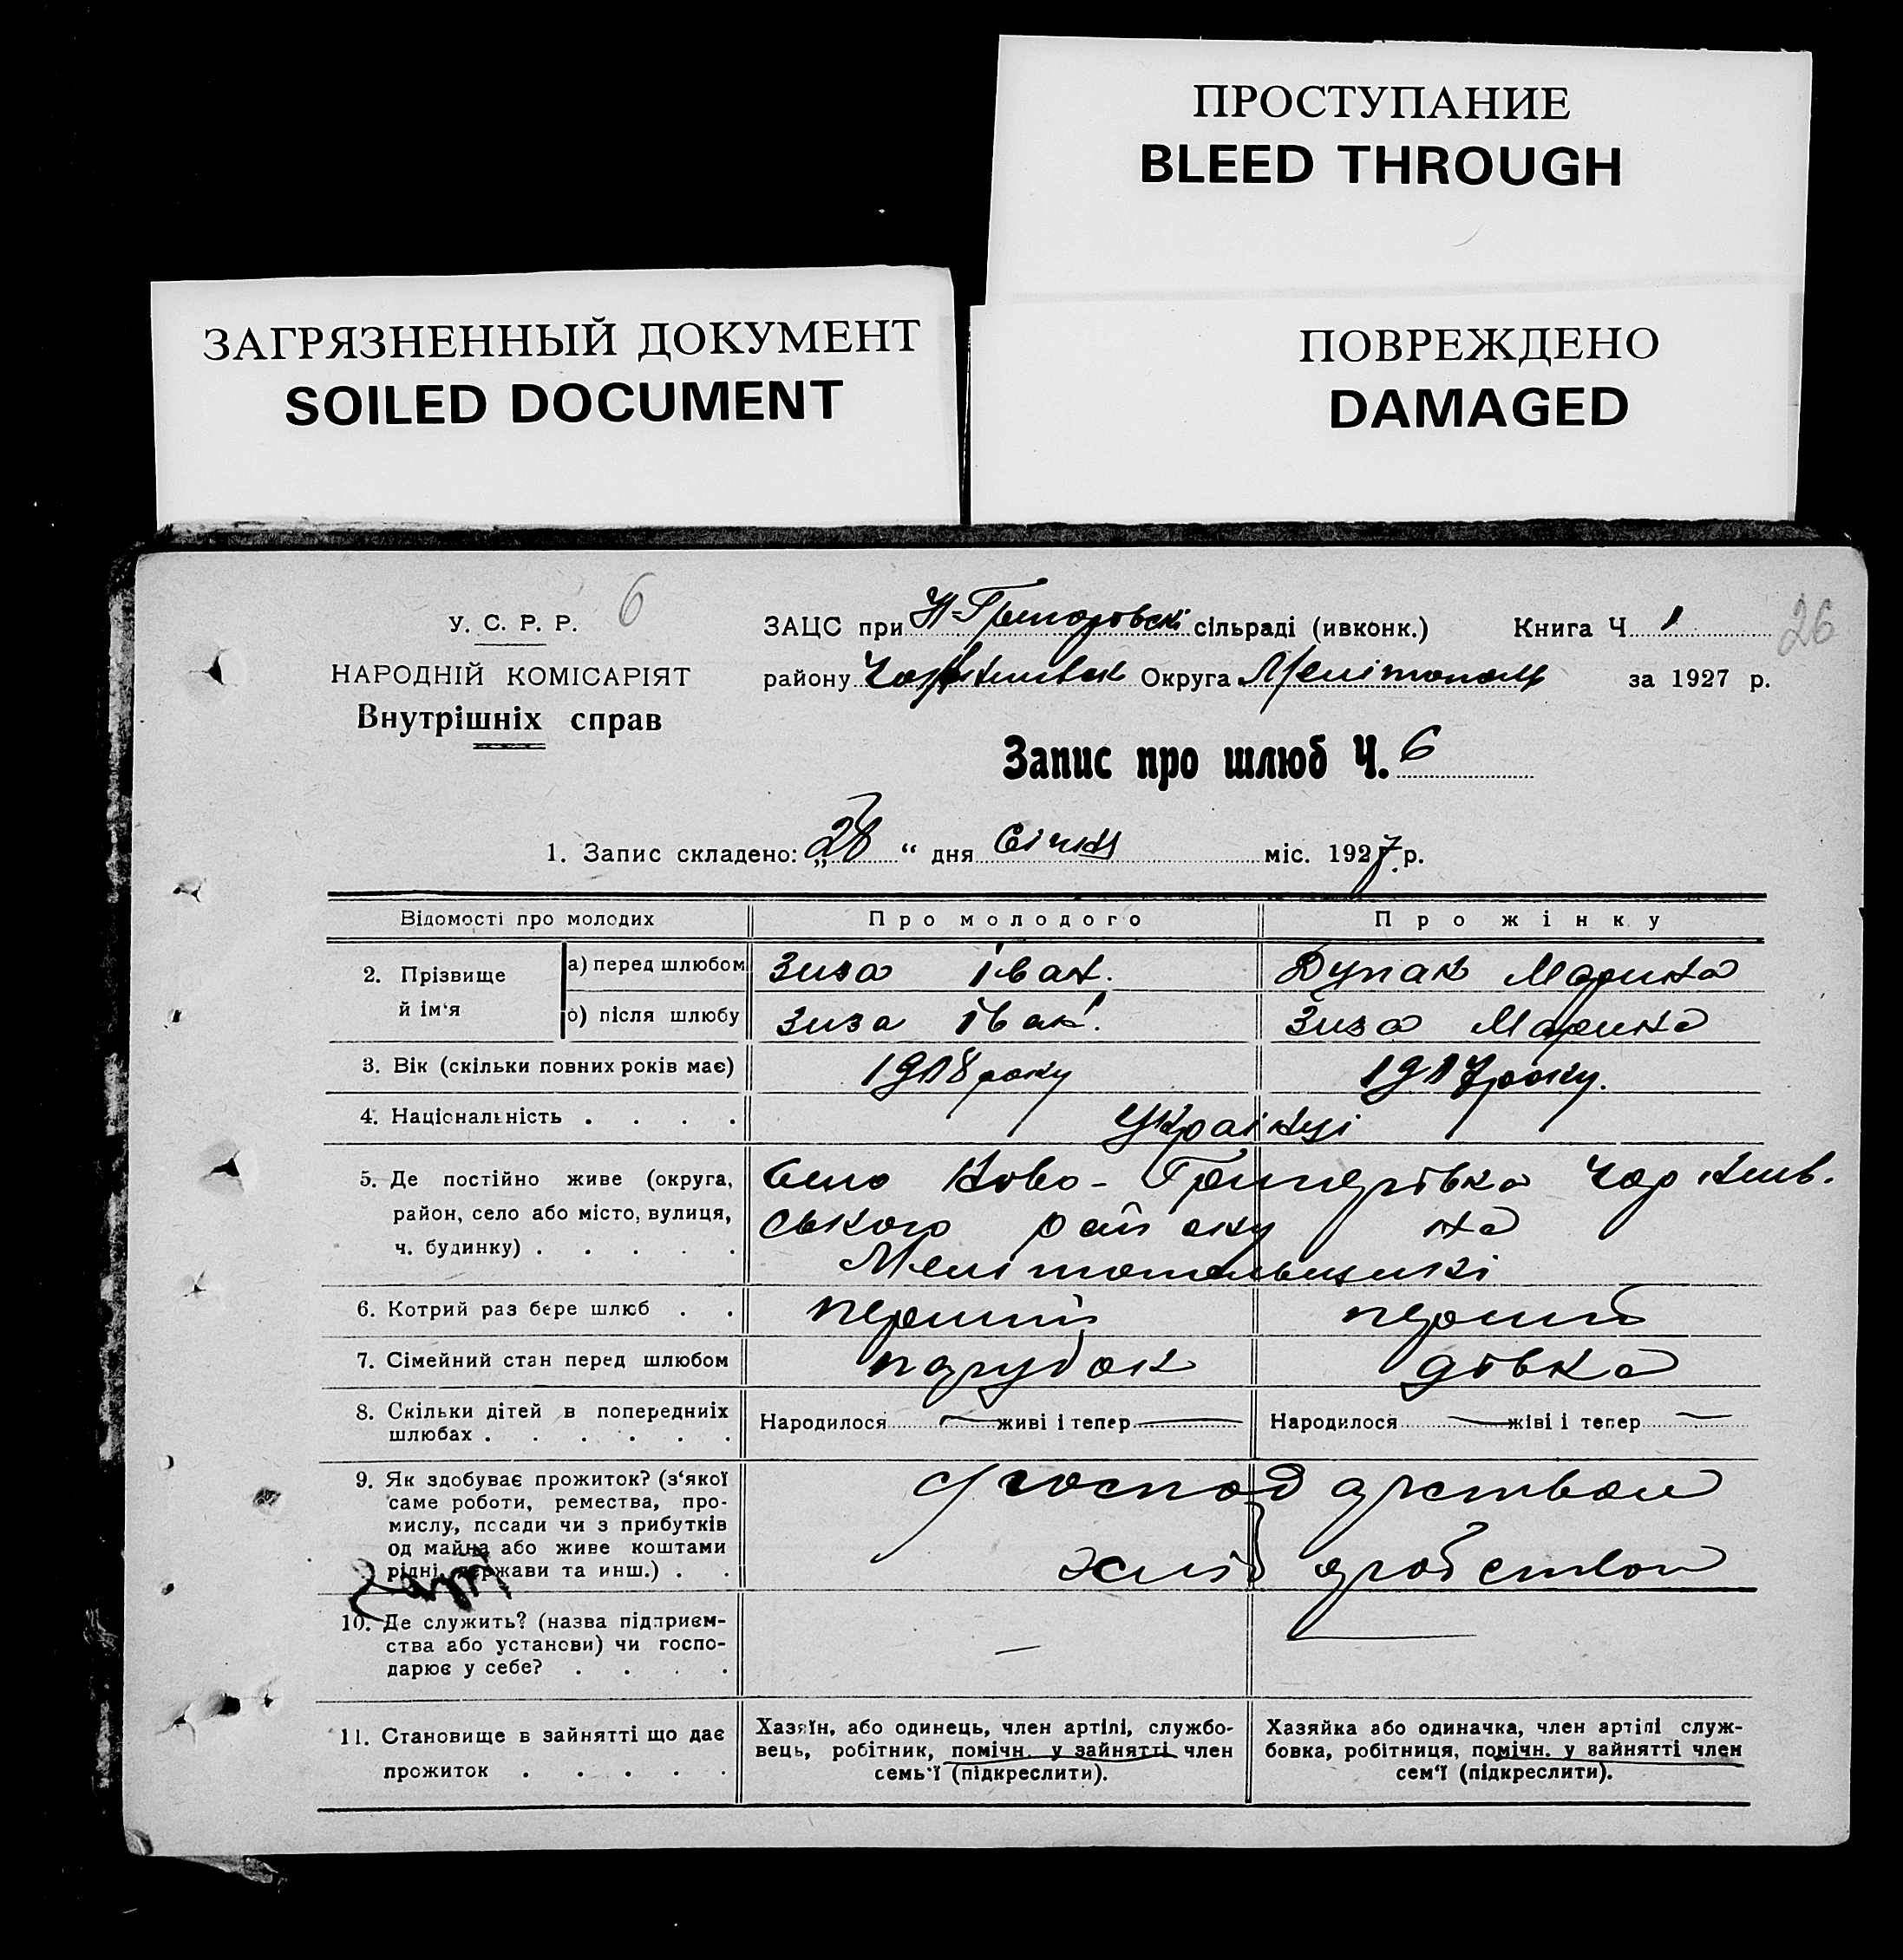 ПРОСТУПАНИЕ
BLEED THROUGH
ЗАГРЯЗНЕННЫЙ ДОКУМЕНТ
SOILED DOCUMENT
ПОВРЕЖДЕНО
DAMAGED
У. С. Р. Р. 6
НАРОДНІЙ КОМІСАРІЯТ
Внутрішніх справ
ЗАЦС при сільраді (ивконк.) Книга Ч. 1 26
району Округа за 1927 р.
Запис про шлюб Ч. 6
1. Запис складено: „28“ дня Січня міс. 1927 р.
Відомості про молодих Про молодого Про жінку
2. Прізвище й ім‘я
а) перед шлюбом Зиза Іван. Дупак Марина
б) після шлюбу Зиза Іван. Зиза Марина
3. Вік (скільки повних років має) 1918 року 1917 року.
4. Національність . . . . Українці
5. Де постійно живе (округа, Село Ново-Григорівка
район, село або місто, вулиця, ського району на
ч. будинку) . . . . . Мелітопольщині
6. Котрий раз бере шлюб . . перший перший
7. Сімейний стан перед шлюбом парубок дівка
8. Скільки дітей в попередниіх Народилося живі і тепер Народилося жіві і тепер
шлюбах . . . . . .
9. Як здобуває прожиток? (з‘якої
саме роботи, ремества, про-
мислу, посади чи з прибутків
од майна або живе коштами
рідні, держави та инш.) . .
10. Де служить? (назва підприєм-
ства або установи) чи госпо- —
дарює у себе? . . . .
11. Становище в зайнятті що дає
прожиток . . . . .
Хазяїн, або одинець, член артілі, службо-
вець, робітник, помічн. у зайнятті член
семь‘ї (підкреслити).
Хазяйка або одиначка, член артілі служ-
бовка, робітниця, помічн. у зайнятті член
сем‘ї (підкреслити).